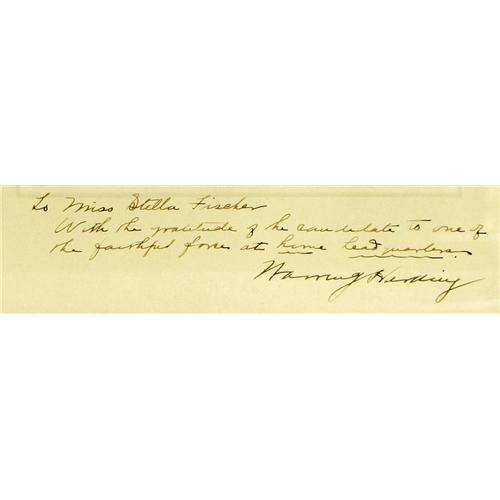 To Miss Stella Fischer
With the gratitude of the candidate to one of
the faithful force at home headquarters.
Warren G Harding